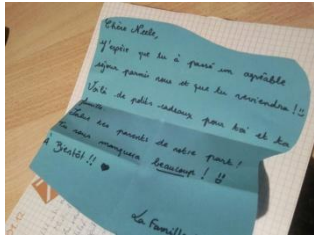 Chère Neele,
J'espère que tu à passé un agréable
séjour parmis nous et que tu reviendra ! :)
Voilà de petits cadeaux pour toi et ta
famille
tes parents de notre part !
Tu nous manquera beaucoup ! :)
À Bientôt !! ♥
La Famille